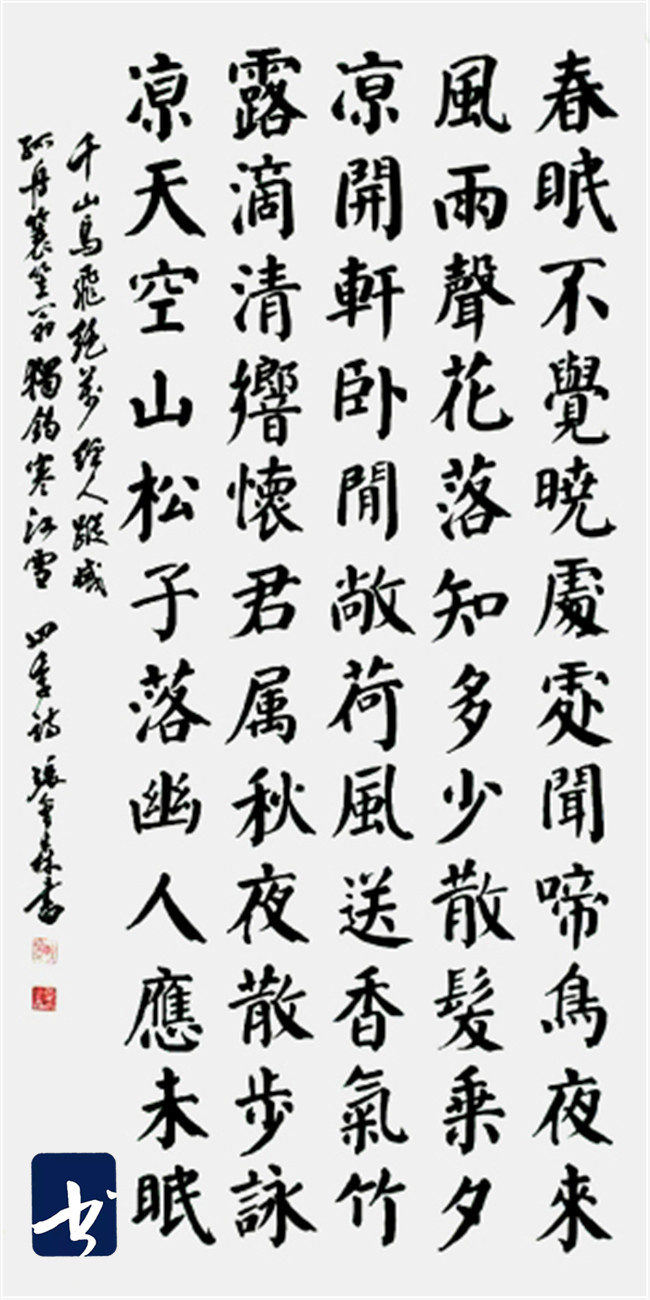 春眠不覺曉處處聞啼鳥夜來
風雨聲花落知多少散髮乘夕
凉開軒卧閒敞荷風送香氣竹
露滴清響懷君属秋夜散步詠
凉天空山松子落幽人應未眠
千山鳥飛絶萬徑人蹤滅
孤舟蓑笠翁獨釣寒江雪 四季诗 張森書
书